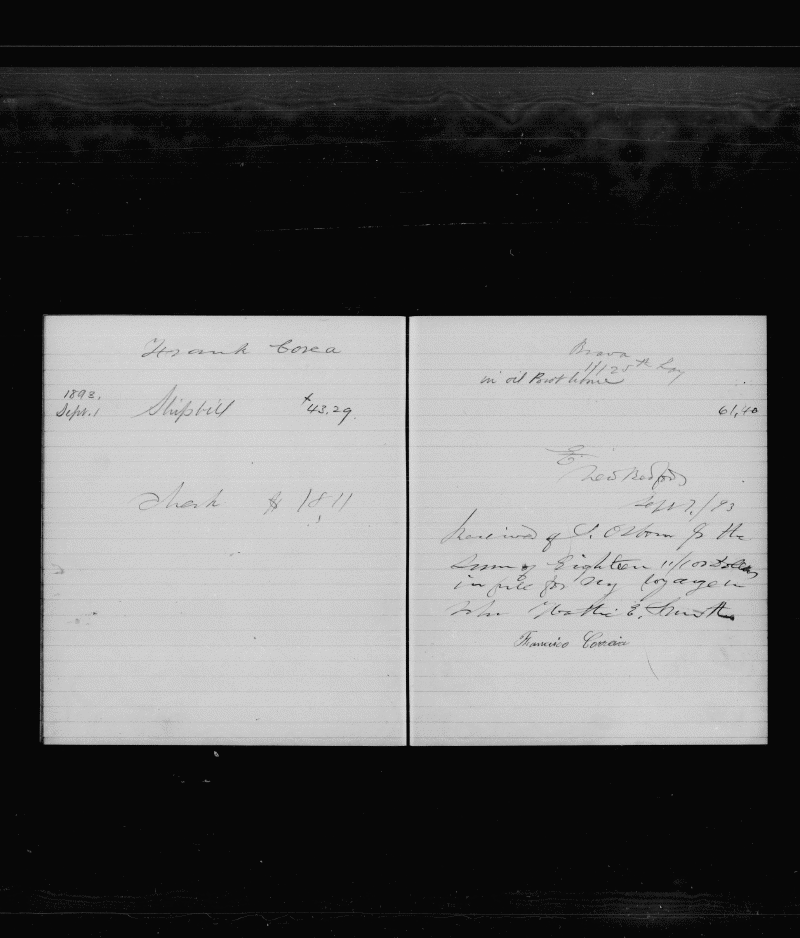 Frank Corea
1893.
Sept. 1 Shipbill 43.29
Check $ 18 11
Brava
1/125th Lay
in oil Boat bone
61,40
E.
New Bedford
Sept 7/93
Received of J. Osborn Jr the
Sum of Eighteen 11/100 Dollars
in full for my voyage in
Schr Hattie E. Smith
Francisco Correia